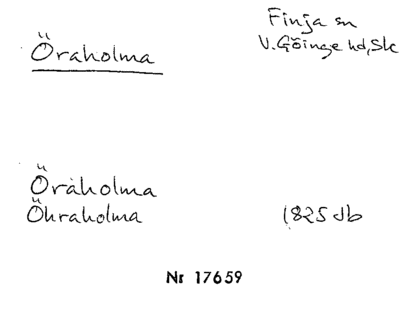 Finja sn
Öraholma
V. Göinge hd, Sk
Öråholma
Öhraholma
1825 Jb
Nr 17659